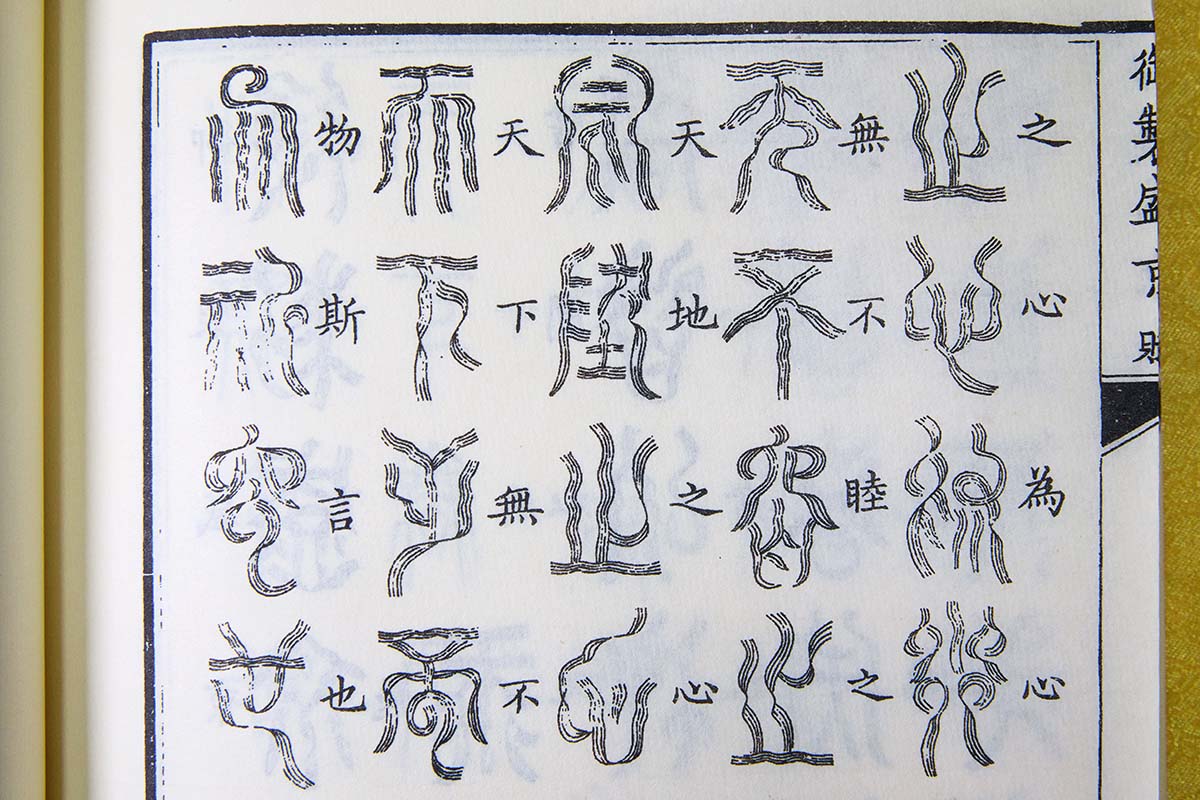 御製盛京賦
之心為心
無不睦之
天地之心
天下無不
物斯言也